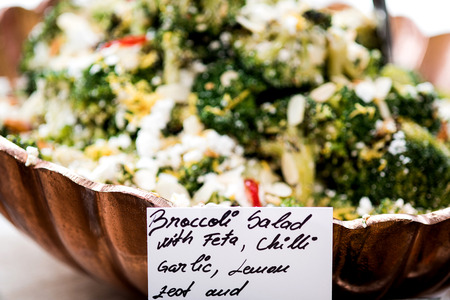 Broccoli Salad
with Feta, Chilli
Garlic, Lemon
zest and